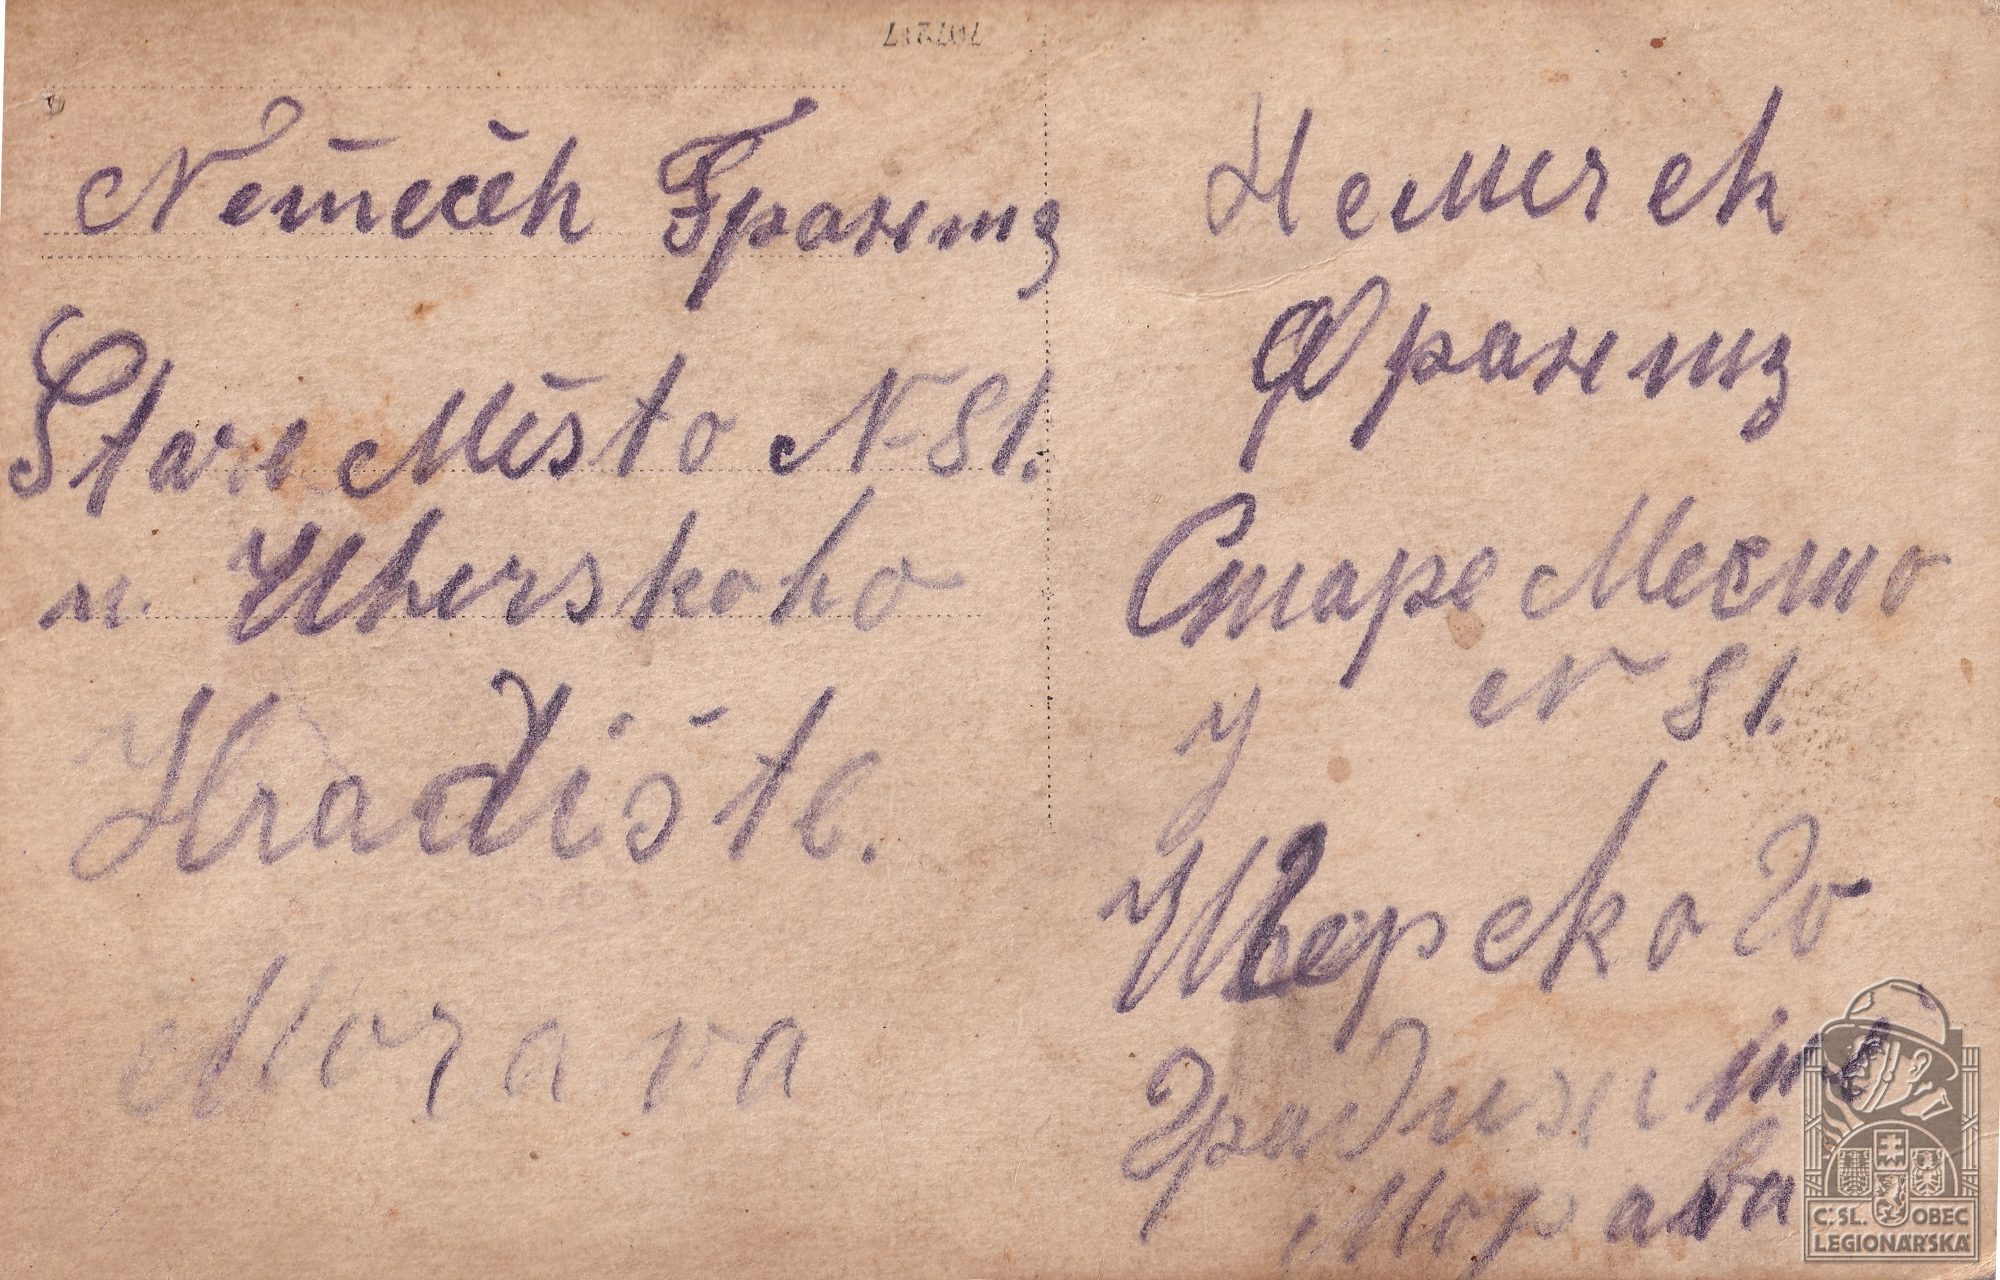 Němeček Франтз
Stare Město N 81.
u. Uherskoho
Hradište.
Morava
Немечек
Франтз
Старе Место
N 81.
У
Угерского
Градижіште
Морава
Č.SL. OBEC
LEGIONÁŘSKÁ